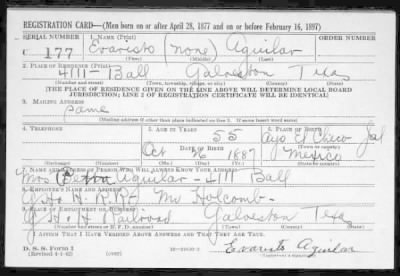 REGISTRATION CARD—(Men born on or after April 28, 1877 and on or before February 16, 1897)
SERIAL NUMBER 1. NAME (Print) ORDER NUMBER
C 177 Evaristo (none) Aguilar
(First) (Middle) (Last)
2. PLACE OF RESIDENCE (Print)
4111- Ball Galveston Texas
(Number and street) (Town, township, village, or city) (County) (State)
[THE PLACE OF RESIDENCE GIVEN ON THE LINE ABOVE WILL DETERMINE LOCAL BOARD
JURISDICTION; LINE 2 OF REGISTRATION CERTIFICATE WILL BE IDENTICAL]
3. MAILING ADDRESS
Same
[Mailing address if other than place indicated on line 2. If same insert word same]
4. TELEPHONE 5. AGE IN YEARS 6. PLACE OF BIRTH
55 Ayo El Chico Jal
DATE OF BIRTH (Town or county)
Oct 26 1887 Mexico
(Exchange) (Number) (Mo.) (Day) (Yr.) (State or country)
7. NAME AND ADDRESS OF PERSON WHO WILL ALWAYS KNOW YOUR ADDRESS
Mrs. Petra Aguilar - 4111 Ball
8. EMPLOYER'S NAME AND ADDRESS
G H & H R.R. Mr Holcomb -
9. PLACE OF EMPLOYMENT OR BUSINESS
G H & H Railroad Galveston Tex
(Number and street or R. F. D. number) (Town) (County) (State)
I AFFIRM THAT I HAVE VERIFIED ABOVE ANSWERS AND THAT THEY ARE TRUE.
D. S. S. Form 1
(Revised 4-1-42) (over) Evaristo Aguilar
(Registrant's signature)